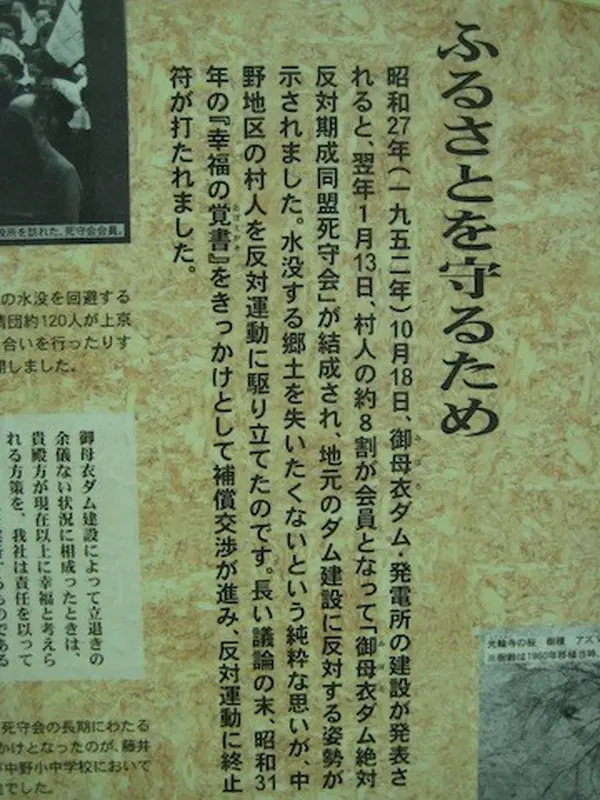 ふるさとを守るため
昭和27年(一九五二年)10月18日、御母衣ダム・発電所の建設が発表さ
れると、翌年1月13日、村人の約8割が会員となって「御母衣ダム絶対
反対期成同盟死守会」が結成され、地元のダム建設に反対する姿勢が
示されました。水没する郷土を失いたくないという純粋な思いが、中
野地区の村人を反対運動に駆り立てたのです。長い議論の末、昭和31
年の『幸福の覚書』をきっかけとして補償交渉が進み、反対運動に終止
符が打たれました。
役所を訪れた、死守会会員。
の水没を回避する
情団約120人が上京
合いを行ったりす
開しました。
御母衣ダム建設によって立退きの
余儀ない状況に相成ったときは、
貴殿方が現在以上に幸福と考えら
れる方策を、我社は責任を以って
するものである
死守会の長期にわたる
かけとなったのが、藤井
中野小中学校において
でした。
光輪寺の桜 樹種 アズマ
※樹齢は1960年移植当時。